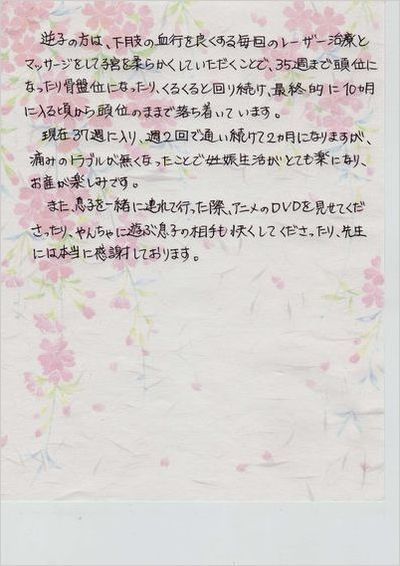 逆子の方は、下肢の血行を良くする毎回のレーザー治療と
マッサージをして子宮を柔らかくしていただくことで、35週まで頭位に
なったり骨盤位になったり、くるくると回り続け、最終的に10ヵ月
に入る頃から頭位のままで落ち着いています。
現在37週に入り、週2回で通い続けて2ヵ月になりますが、
痛みのトラブルが無くなったことで妊娠生活がとても楽になり、
お産が楽しみです。
また、息子を一緒に連れて行った際、アニメのDVDを見せてくだ
さったり、やんちゃに遊ぶ息子の相手も快くしてくださったり、先生
には本当に感謝しております。